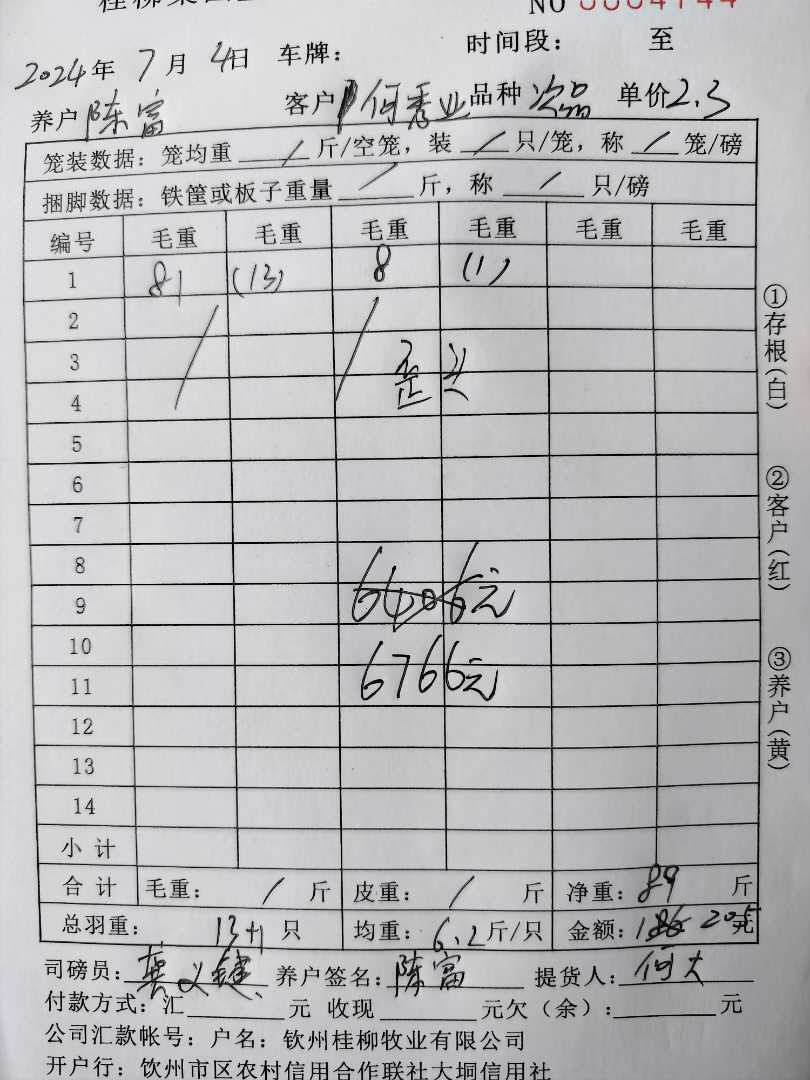 NO
2024年 7月 4日 车牌: 时间段: 至
养户 陈富 客户 何秀业 品种 次品 单价2.3
笼装数据: 笼均重 / 斤/空笼, 装 / 只/笼, 称 / 笼/磅
捆脚数据: 铁筐或板子重量 / 斤, 称 / 只/磅
编号 毛重 毛重 毛重 毛重 毛重 毛重
1 81 (13) 8 (1)
2
3 歪头
4
5
6
7
8
9 6406元
10
11 6766元
12
13
14
小 计
合 计 毛重: / 斤 皮重: / 斤 净重: 89 斤
总羽重: 13+1 只 均重: 6.2斤/只 金额: 186 205元
司磅员: 养户签名: 陈富 提货人: 何大
付款方式: 汇 元 收现 元欠(余): 元
公司汇款帐号: 户名: 钦州桂柳牧业有限公司
开户行: 钦州市区农村信用合作联社大垌信用社
①存根(白)
②客户(红)
③养户(黄)